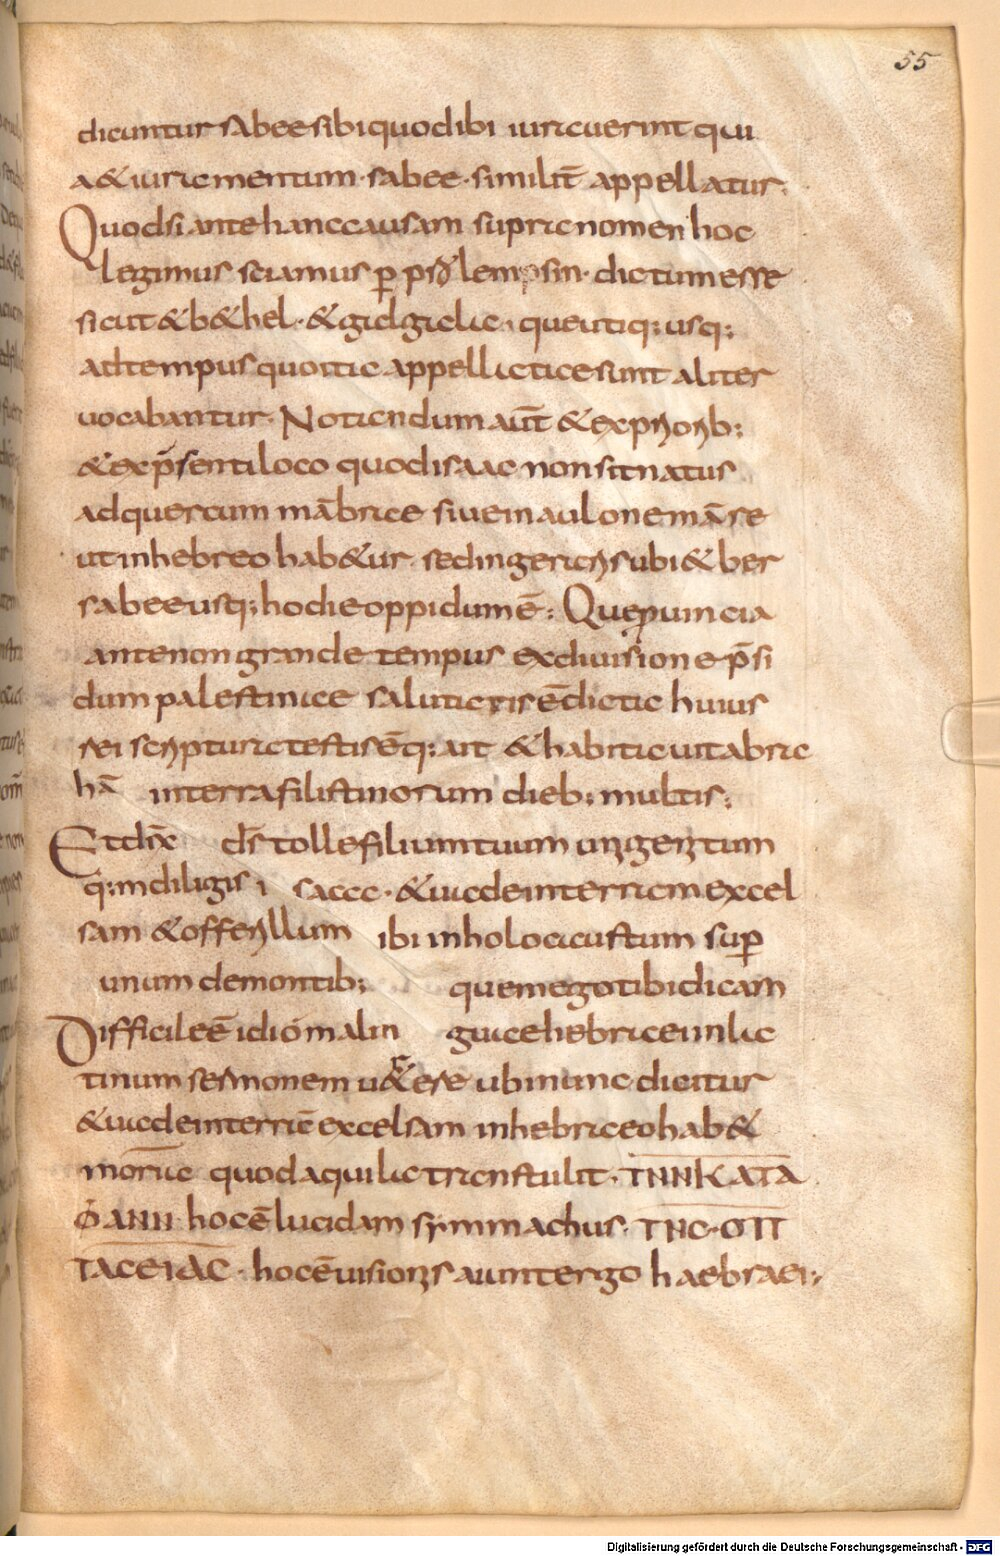 55
dicuntur sabee sibi quod ibi iurauerint qui
a & iuramentum · sabee · similit̄ appellatur.
Quod si ante hanc causam supra nomen hoc
legimus sciamus ꝑ lempsin · dictum esse
sicut & b&hel · & gidgidlia · que utiq; usq;
ad tempus quo ita appellatae sunt aliter
uocabantur · Notandum aūt & ex priorib;
& ex p̄senti loco quod isaac non sit natus
ad quercum mābrae siue in aulone māre
ut in hebreo hab&ur · sed in geraris ubi & ber
sabee usq; hodie oppidum ē: Que puincia
ante non grande tempus ex diuisione p̄si
dum palestinae salutaris ē dicta huius
rei scriptura testis ē q: ait & habitauit abra
hā in terra filistinorum dieb; multis;
Et dix̄ d̄s tolle filium tuum unigenitum
q:m diligis isaac · & uade in terram excel
sam & offeres illum ibi in holocaustum sup̄
unum de montib; quem ego tibi dicam
Difficile ē idióma linguae hebraee in la
tinum sermonem u&ere ubi nunc dicitur
& uade in terrā excelsam in hebraeo hab&
moria quod aquila transtulit · ΤΗΝ ΚΑΤΑ
ΦΑΝΗ hoc ē lucidam symmachus · ΤΗC·ΟΠ
ΤΑCΕΙΑC · hoc ē uisionis aiunt ergo haebraei;
Digitalisierung gefördert durch die Deutsche Forschungsgemeinschaft - DFG